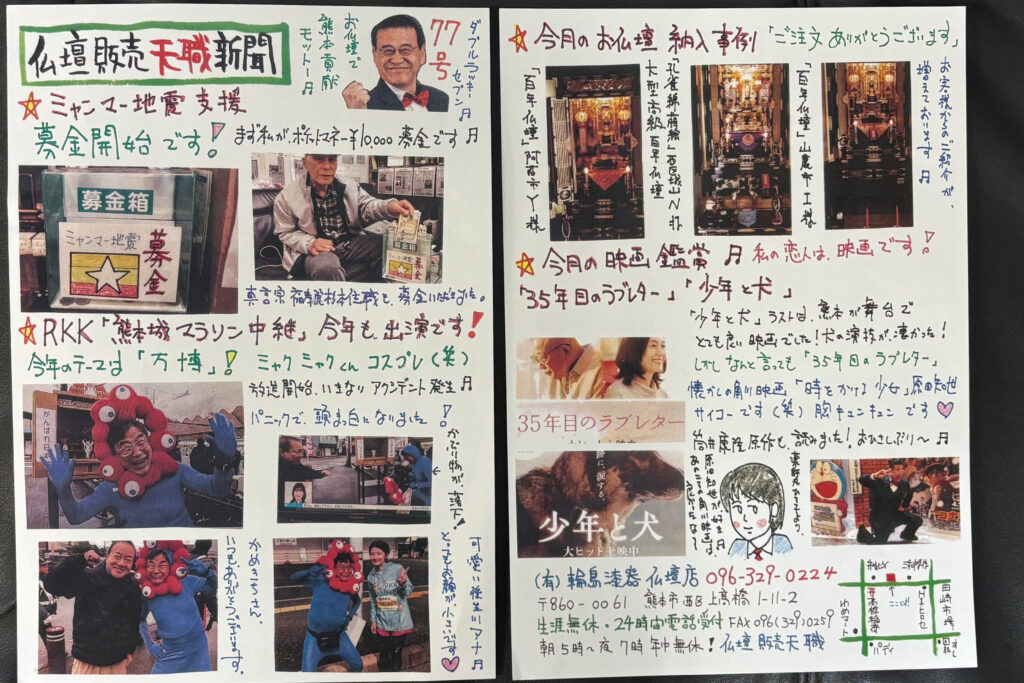 仏壇販売天職新聞
お仏壇で
熊本貢献
モットー♬
77号
ダブルラッキー
セブン♬
☆ミャンマー地震支援
募金開始です!
まず私が、ポケットマネー¥10000募金です♬
募金箱
ミャンマー地震
募金
募金箱
ミャンマー地震
募金
☆RKK「熊本城マラソン中継」今年も出演です!
今年のテーマは「万博」!
ミャクミャクくんコスプレ(笑)
放送開始、いきなりアクシデント発生♬
パニックで、頭ま白になりました!
がんばれ
かぶり物が、落下!
かめきちさん、
いつもありがとうございます。
とってもお顔が小さいです♡
☆今月のお仏壇納入事例「ご注文ありがとうございます」
「百年仏壇」阿蘇市Y様
大型高級百年仏壇
「百年仏壇」山鹿市I様
お客様からのご紹介が、
増えております♬
☆今月の映画鑑賞♬私の恋人は、映画です!
「35年目のラブレター」「少年と犬」
「少年と犬」ラストは、熊本が舞台で
とても良い映画でした!犬の演技が、凄かった!
しかしなんと言っても「35年目のラブレター」
懐かしの角川映画「時をかける少女」原田知世
サイコーです(笑)胸キュンキュンです♡
筒井康隆原作も、読みました!おひさしぶり〜♬
35年目のラブレター
少年と犬
大ヒット上映中
(有)輪島漆器仏壇店 096-329-0224
〒860-0061 熊本市西区上高橋1-11-2
生涯無休・24時間電話受付 FAX096(329)0259
朝5時〜夜7時年中無休!仏壇販売天職
田崎市場
ゆめマート